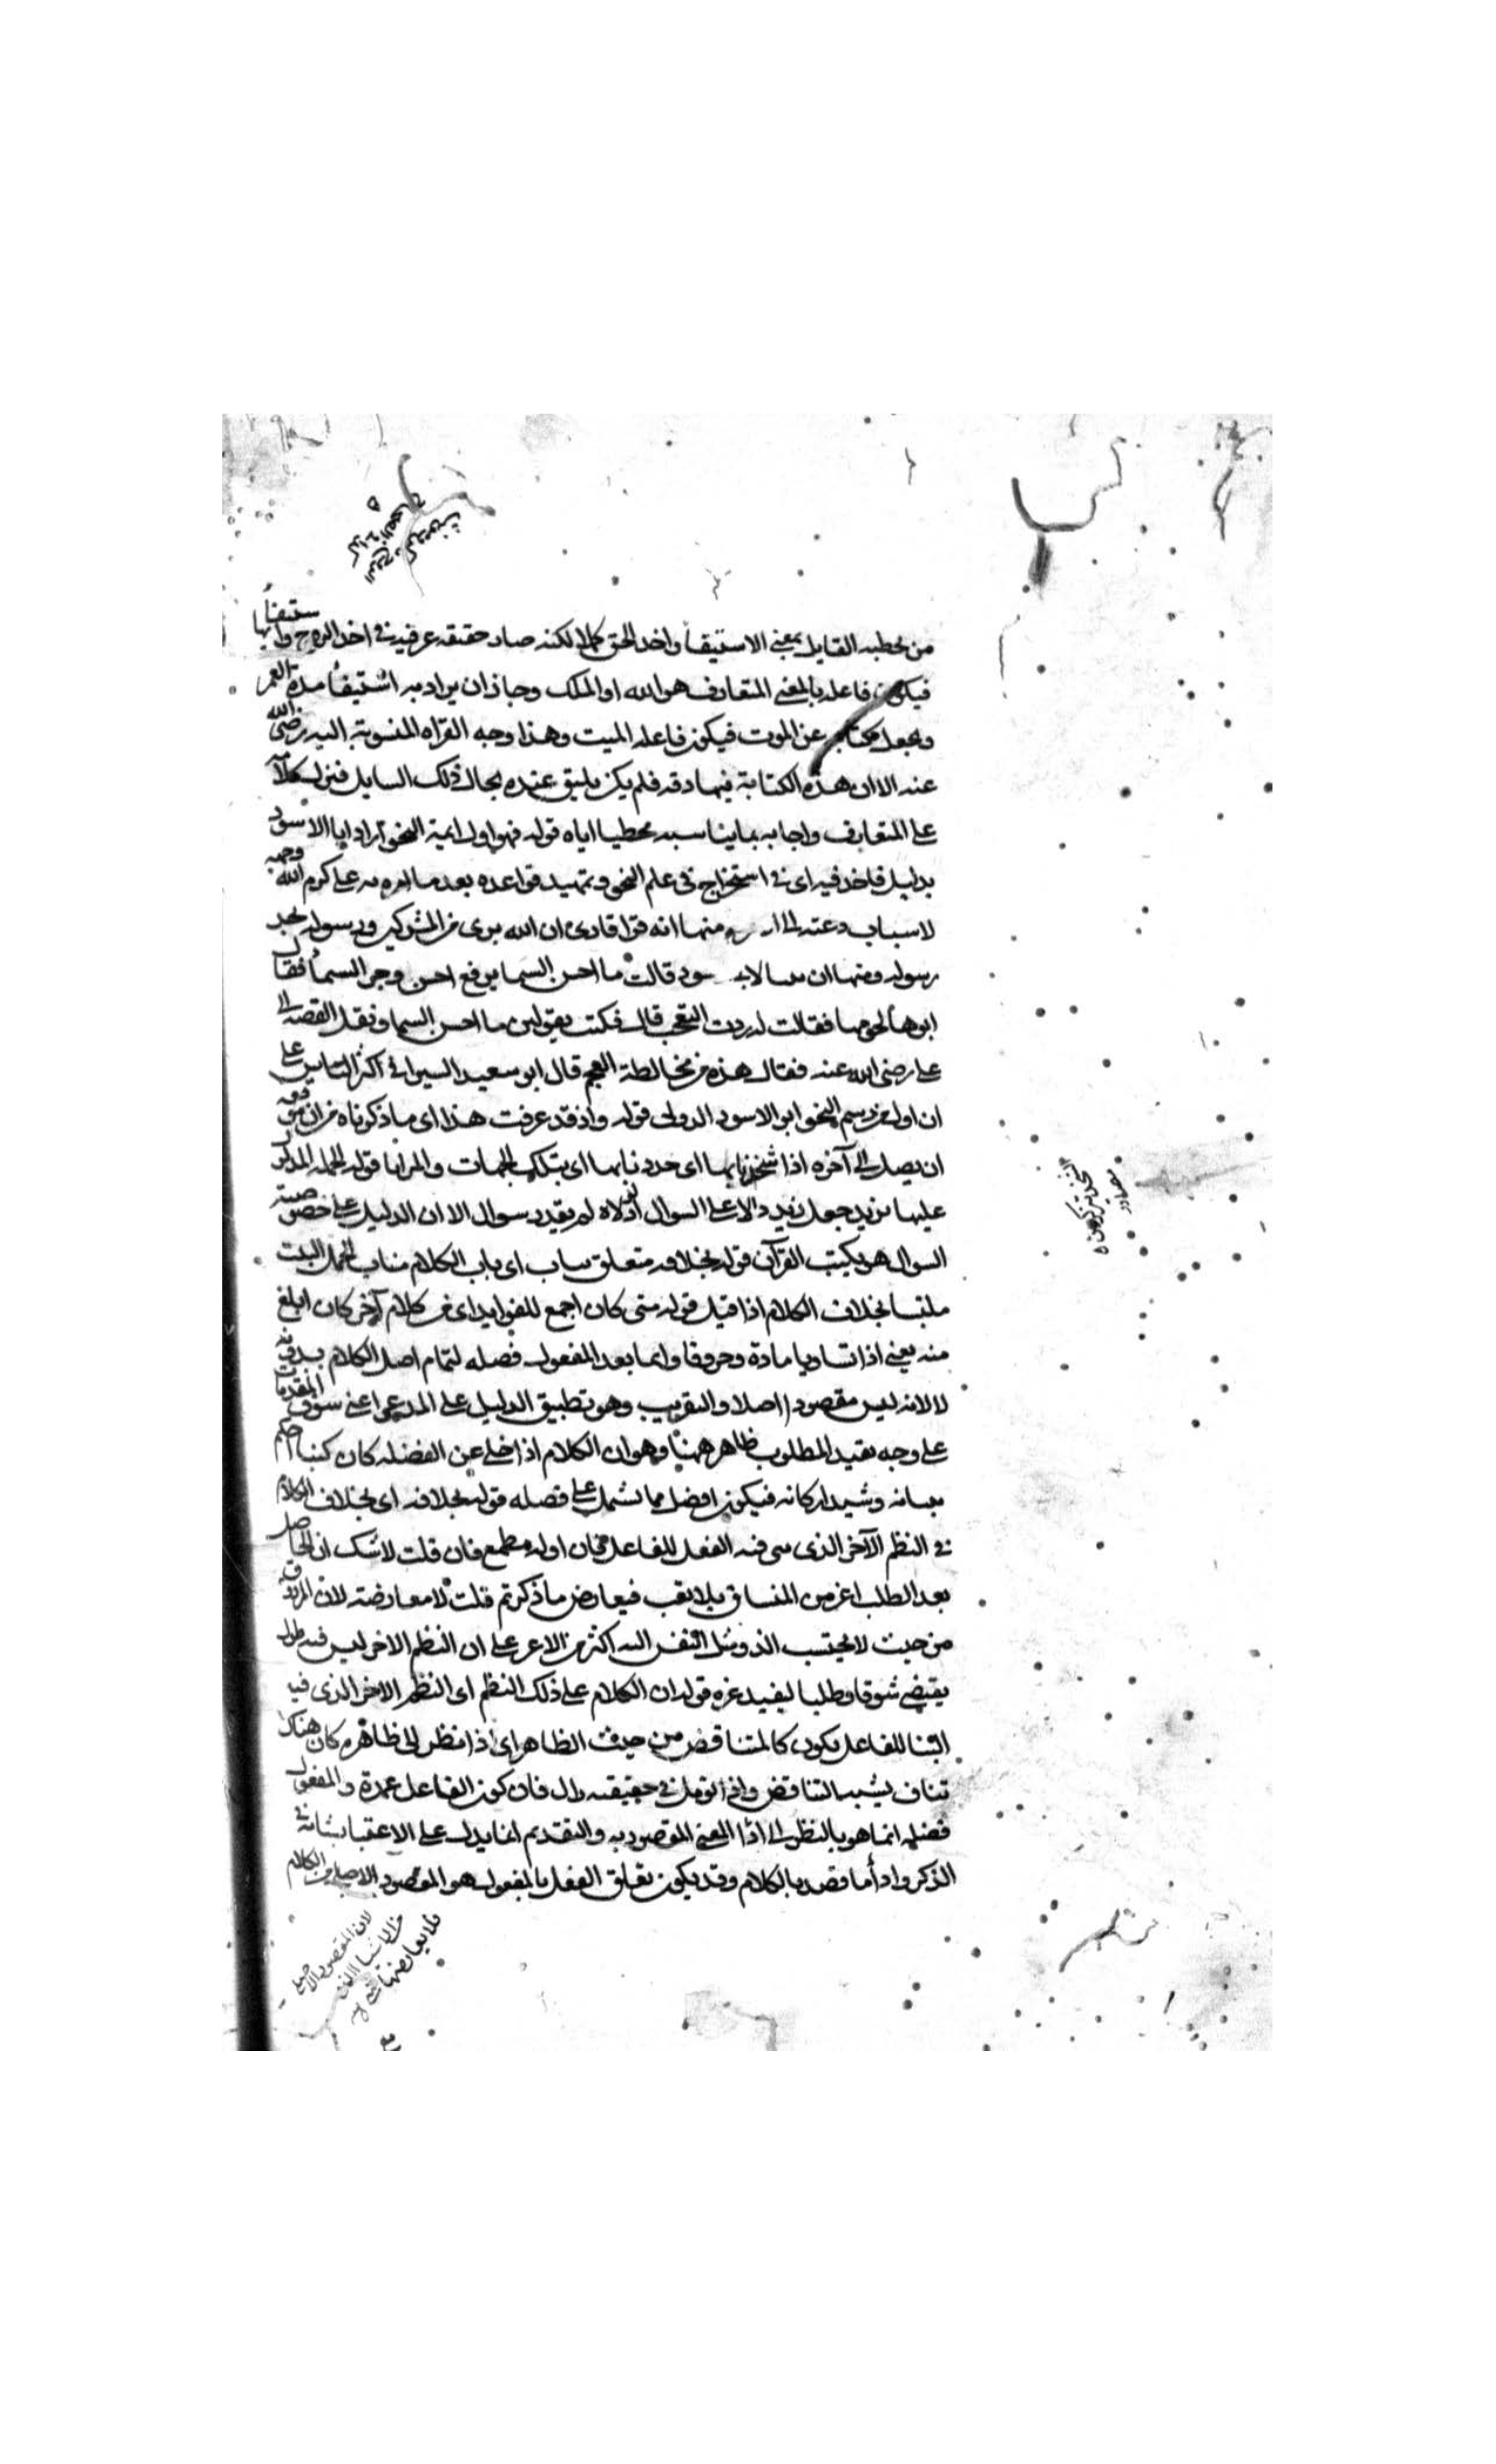 من تخطيه القايل بمعنى الاستيفا واخذ الحق كملا لكنه صار حقيقة عرفية فى اخذ الروح واستيفائها
فيكون فاعله بالمعنى المتعارف هو الله او الملك وجاز ان يراد به استيفا مدة العمر
ويجعل عن الموت فيكون فاعله الميت وهذا وجه القراه المنسوبة اليه رضى الله
عنه الا ان هذه الكناية فيها دقة فلم يكن يليق عنده بحال ذلك السايل فنزل كلامه
على المتعارف واجابه بما يناسبه مخطيا اياه قوله فهو اول ايمة النحو اراد ابا الاسود
بدليل فاخذ فيه اى فى استخراج فى علم النحو وتمهيد قواعده بعد ما امره به على كرم الله وجهه
لاسباب دعته الى منها انه قرا قارئ ان الله برى من المشركين ورسوله بجر
رسوله ومنها ان الاسود قالت ما احسن السما برفع احسن وجر السما فقال
ابوها نجومها فقالت اردت التعجب قال فكنت تقولين ما احسن السما ونقل القصة الى
على رضى الله عنه فقال هذه من مخالطة العجم قال ابو سعيد السيرافى اكثر الناس على
ان اول من رسم النحو ابو الاسود الدولى قوله واذ قد عرفت هذا اى ما ذكرناه من ان حقه
ان يصل الى آخره اذا شحذنا بها اى حددنا بها اى بتلك الجهات والمزايا قوله الجملة المدلول
عليها بزيد جعل يزيد دالا على السوال اذ لولاه لم يقدر سوال الا ان الدليل على خصوصية
السوال هو يكتب القرآن قوله بخلافه متعلق بناب اى ناب الكلام مناب الجمل الثلث
ملتبسا بخلاف الكلام اذا قيل قوله متى كان اجمع للفوايد اى من كلام آخر كان ابلغ
منه يعنى اذا تساويا مادة وحروفا وانما يعد المفعول فضله لتمام اصل الكلام بدونه
لا لانه ليس مقصودا اصلا والتقريب وهو تطبيق الدليل على المدعى اعنى سوق المقدمات
على وجه يفيد المطلوب ظاهر ههنا وهو ان الكلام اذا خلى عن الفضله كان احكم
بنيانه وشيد اركانه فيكون افضل مما يشتمل على فضله قوله بخلافه اى بخلاف الكلام
فى النظم الآخر الذى بنى فيه الفعل للفاعل فان اوله مطمع فان قلت لا شك ان الحاصل
بعد الطلب اعز من المنساق بلا تعب فيعارض ما ذكرتم قلت لا معارضة لان المرزوق
من حيث لا يحتسب الذ وميل النفس اليه اكثر من الاعز على ان النظم الاخر ليس فيه
يقتضى شوقا وطلبا ليفيد عزه قوله ان الكلام على ذلك النظم اى النظم الاخر الذى فيه
البنا للفاعل يكون كالمتناقض من حيث الظاهر اى اذا نظر الى ظاهره كان هناك
تناف يشبه التناقض واذا تومل فى حقيقته زال فان كون الفاعل عمدة والمفعول
فضله انما هو بالنظر الى اذا المعنى المقصود به والتقديم انما يدل على الاعتنا بشانه فى
الذكر وادا ما قصد بالكلام وقد يكون تعلق الفعل بالمفعول هو المقصود الاصلى من الكلام